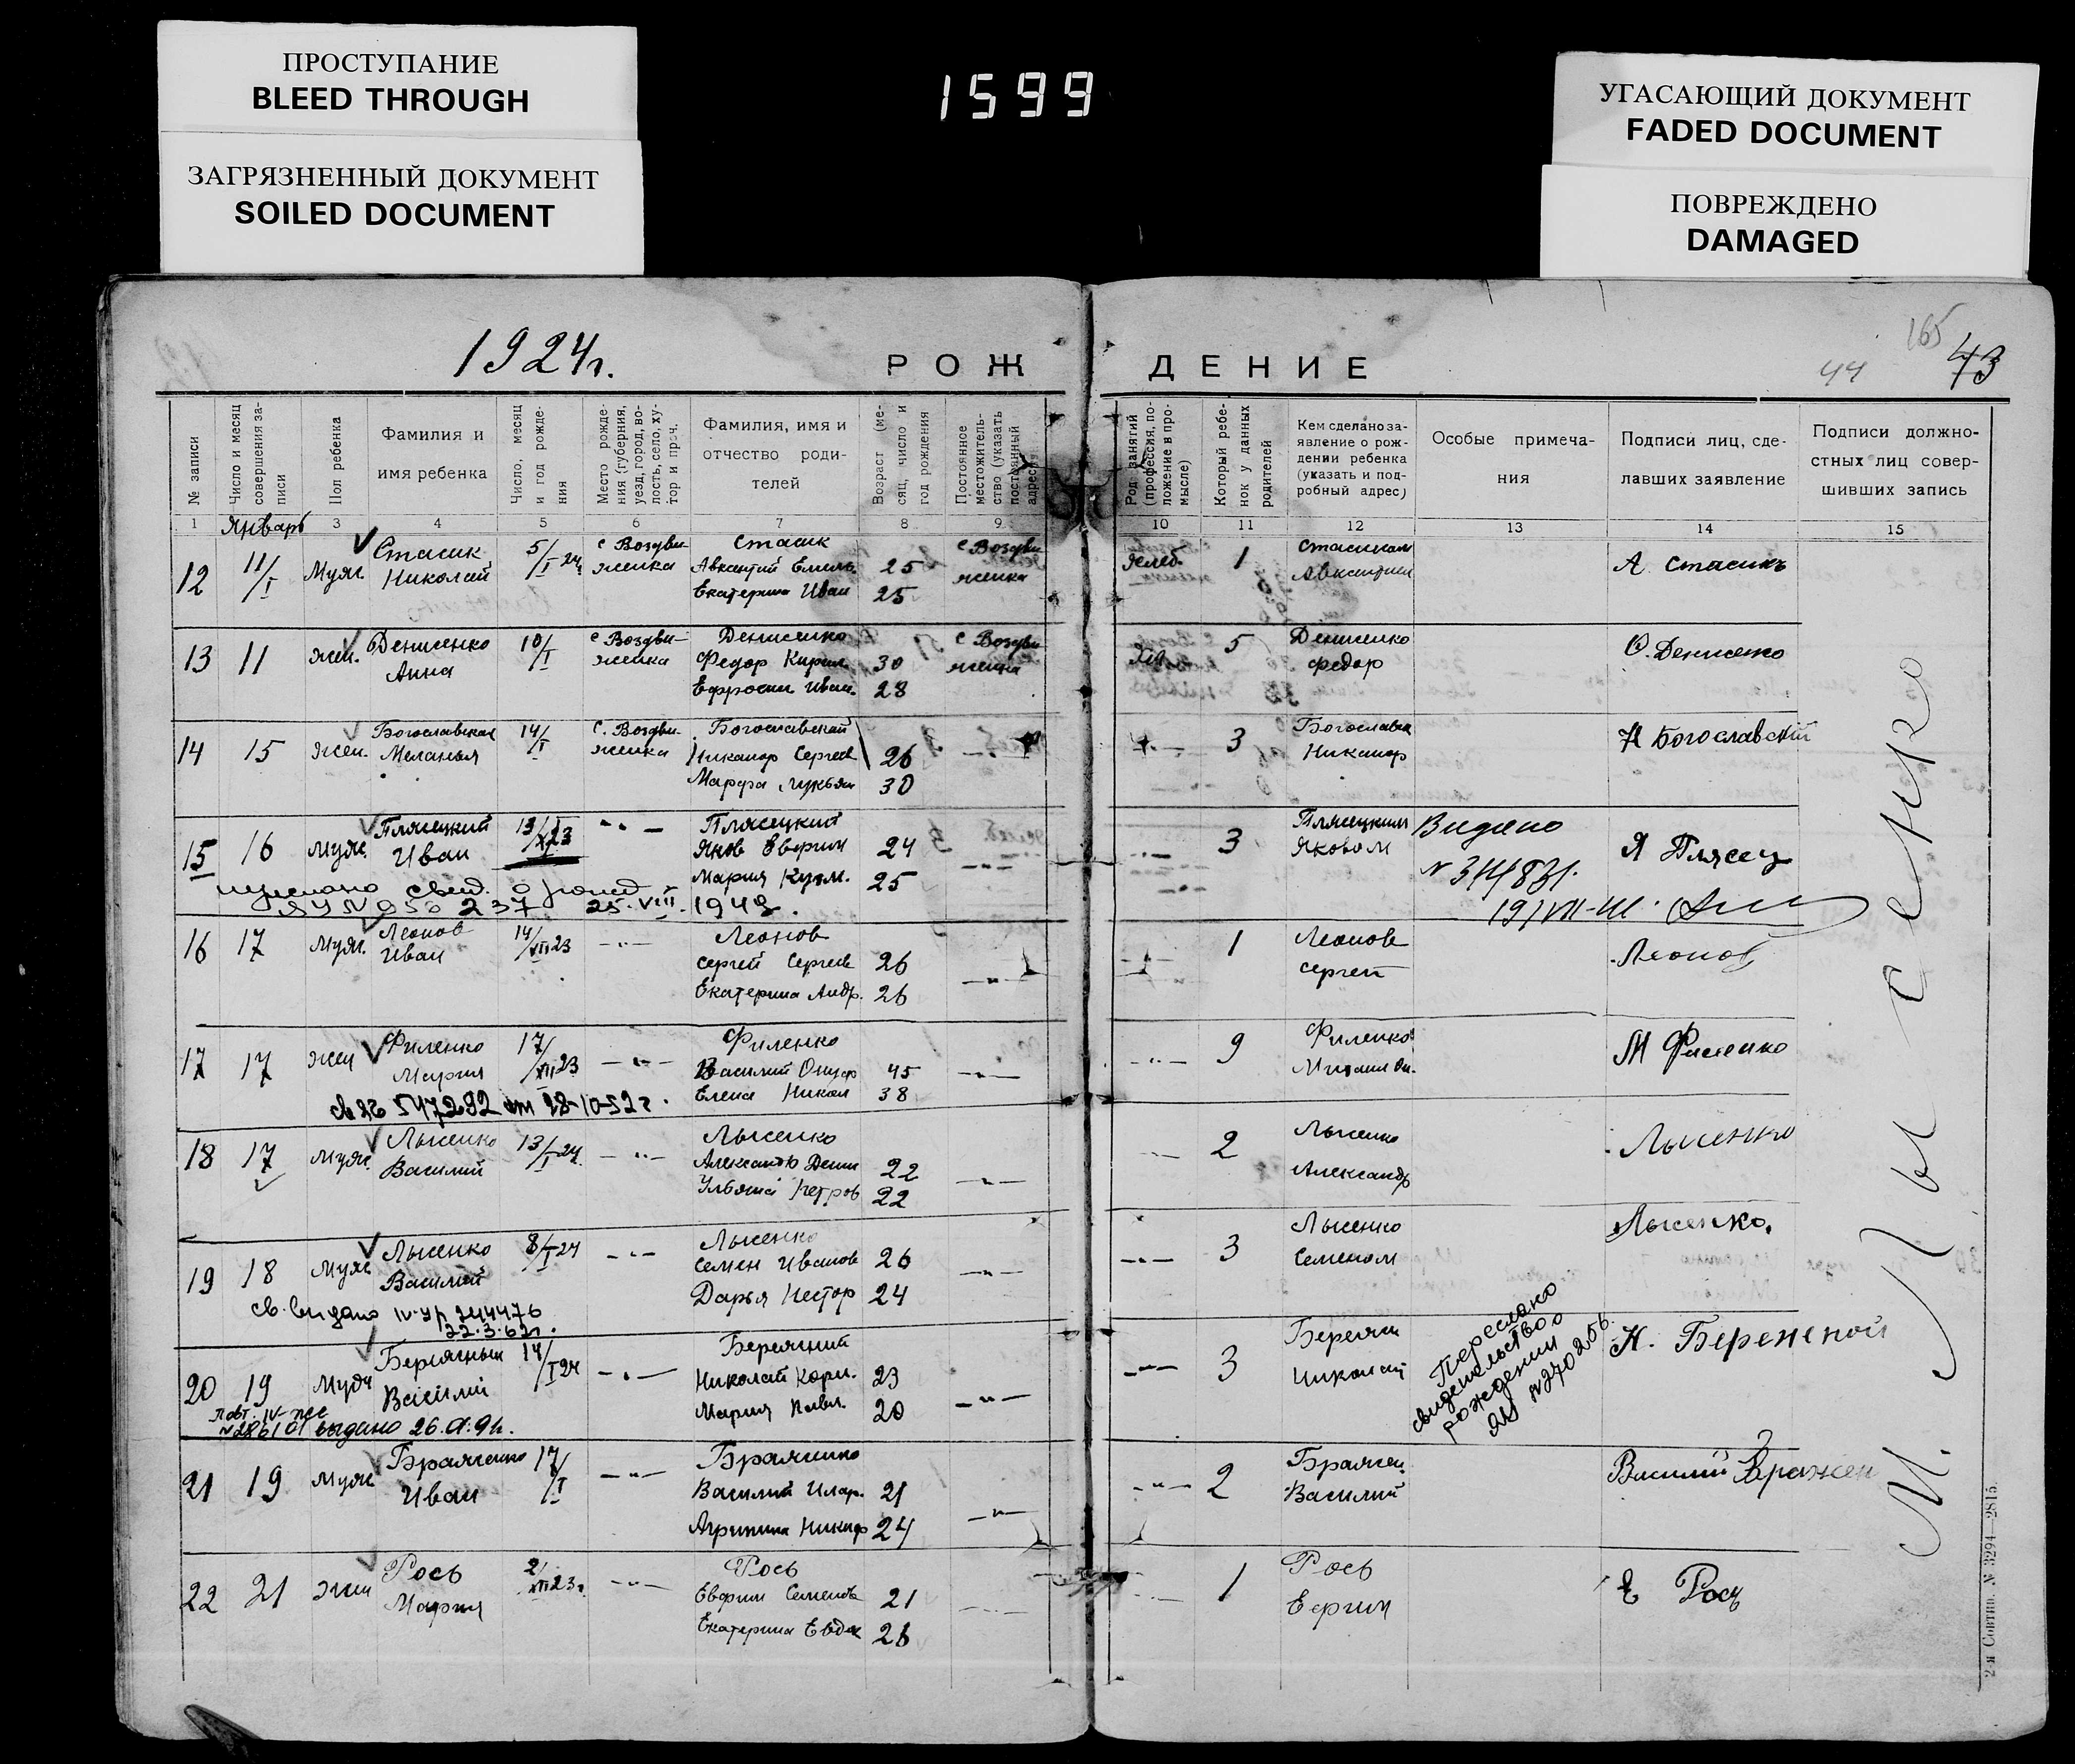 ПРОСТУПАНИЕ
BLEED THROUGH
ЗАГРЯЗНЕННЫЙ ДОКУМЕНТ
SOILED DOCUMENT
1599
УГАСАЮЩИЙ ДОКУМЕНТ
FADED DOCUMENT
ПОВРЕЖДЕНО
DAMAGED
1924г.
РОЖ ДЕНИЕ
165
44 43
№ записи
Число и месяц совершения записи
Пол ребенка
Фамилия и
имя ребенка
Число, месяц и год рождения
Место рождения (губерния, уезд, город, волость, село, хутор и проч.
Фамилия, имя и
отчество роди-
телей
Возраст (месяц, число и год рождения
Постоянное местожительство (указать постоянный адрес)
Род занятий (профессия, положение в промысле)
Который ребенок у данных родителей
Кем сделано за-
явление о рож-
дении ребенка
(указать и под-
робный адрес)
Особые примеча-
ния
Подписи лиц, сде-
лавших заявление
Подписи должно-
стных лиц совер-
шивших запись
1 Январь 3 4 5 6 7 8 9 10 11 12 13 14 15
12 11/I Муж. Стасик Николай 5/I 24 с Воздви-
женка Стасик
Авксентий Емель. 25
Екатерина Иван 25
с Воздви
женка
хлеб. 1 Стасиком
Авксентием
А Стасикъ
13 11 жен. Денисенко Анна 10/I с Воздви-
женка Денисенко
Федор Кирил. 30
Ефросин Иван. 28
с Воздви
женка
5 Денисенко
Федор
Денисенко
14 15 жен. Богославская Меланья 14/I С. Воздви-
женка Богославский
Никанор Сергеев 26
Марфа Лукьян 30
3 Богославск
Никанор
Н Богославский
15 16 муж. Плясецкий Иван 13/I 23 -"- Плясецкий
Яков Ефрим 24
Мария Кузм. 25
-"-
3 Плясецким
Яковом
Видано
N 344831.
Я Плясец
свид. о рожд
25.VIII.
16 17 муж. Леонов Иван 14/VII 23 -"- Леонов
Сергей Сергеев 26
Екатерина Андр. 26
-"-
1 Леонов
Сергей
Леонов
17 17 жен Филенко Мария 17/XII 23 -"- Филенко
Василий Онуф 45
Елена Никол 38
-"-
-"- 9 Филенко
М Филенко
547292 от 28-10-52 г.
18 17 муж. Лысенко Василий 13/I 24. -"- Лысенко
Александр Дени 22
Ульяна Петров 22
-"-
2 Лысенко
Александр
Лысенко
19 18 муж Лысенко Василий 8/I 24 -"- Лысенко
Семен Иванов 26
Дарья Нестор 24
-"-
-"- 3 Лысенко
Семеном
Лысенко.
св. выдано IV-УР 244476
22.3.62г.
20 19 Муж Бережный Василий 14/I 24 -"- Бережний
Николай Корн. 23
Мария Павл. 20
-"-
-"- 3 Бережн
Николай
Переслано
свидетельство о
рождении
N 270256.
Н. Береженой
повт.
выдано
21 19 муж Браженко Иван 17/I -"- Браженко
Василий Илар. 21
Агрипина Никиф 24
-"-
-"- 2 Бражен.
Василий
Василий Бражен
22 21 жен Рось Мария 2/XII 23г -"- Рось
Ефрим Семенов 21
Екатерина Евдок 26
-"-
1 Рось
Ефрим
Е Рось
М. Лысенко
2-я Совтип. № 3294—2815.